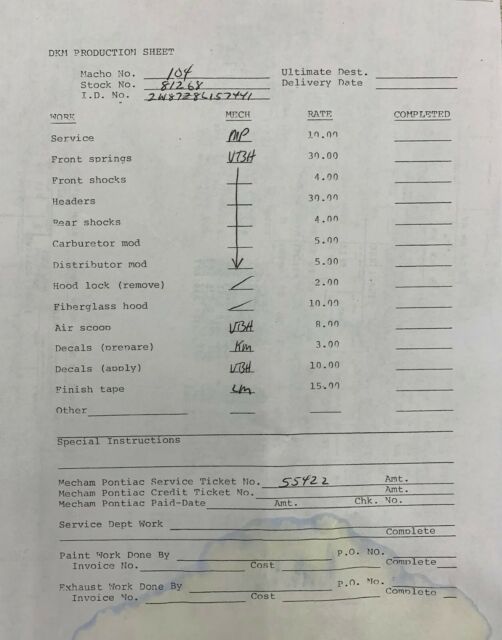 DKM PRODUCTION SHEET
Macho No. 104 Ultimate Dest.
Stock No. 81268 Delivery Date
I.D. No. 2W87Z8L157441
WORK MECH RATE COMPLETED
Service MP 10.00
Front springs VBH 30.00
Front shocks 4.00
Headers 30.00
Rear shocks 4.00
Carburetor mod 5.00
Distributor mod 5.00
Hood lock (remove) 2.00
Fiberglass hood 10.00
Air scoop VBH 8.00
Decals (prepare) KM 3.00
Decals (apply) VBH 10.00
Finish tape LM 15.00
Other
Special Instructions
Mecham Pontiac Service Ticket No. 55422 Amt.
Mecham Pontiac Credit Ticket No. Amt.
Mecham Pontiac Paid-Date Amt. Chk. No.
Service Dept Work
Complete
Paint Work Done By P.O. No.
Invoice No. Cost Complete
Exhaust Work Done By P.O. No.
Invoice No. Cost Complete